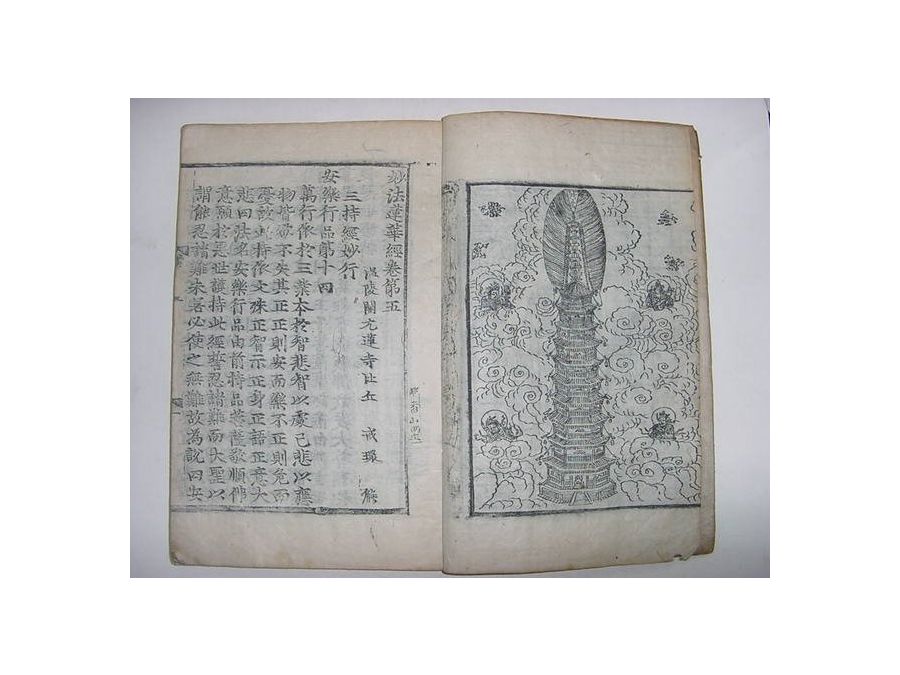 妙法蓮華經卷第五
溫陵開元蓮寺比丘 戒環 解
三持經妙行
安樂行品第十四
萬行依於三業本於智悲智以處己悲以應
物皆欲不失其正正則安而樂不正則危而
憂故此持依文殊正智示正身正語正意大
悲四法名安樂行品由前持品菩薩敬順佛
意願於惡世護持此經誓忍諸難而大聖以
謂能忍諸難未善必使之無難故為說四安